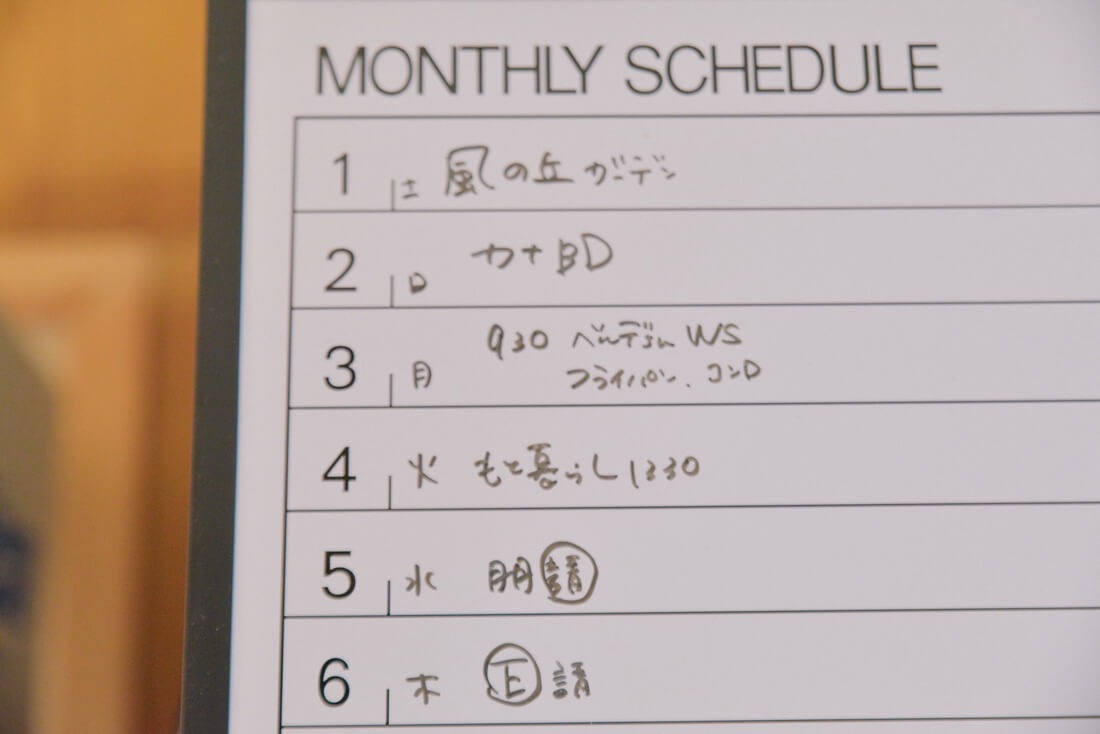 MONTHLY SCHEDULE
1 土 風の丘 ガーデン
2 日 カナBD
3 月 930 ベルデム WS
フライパン、コンD
4 火 もと暮らし1330
5 水 朋請
6 木 正請